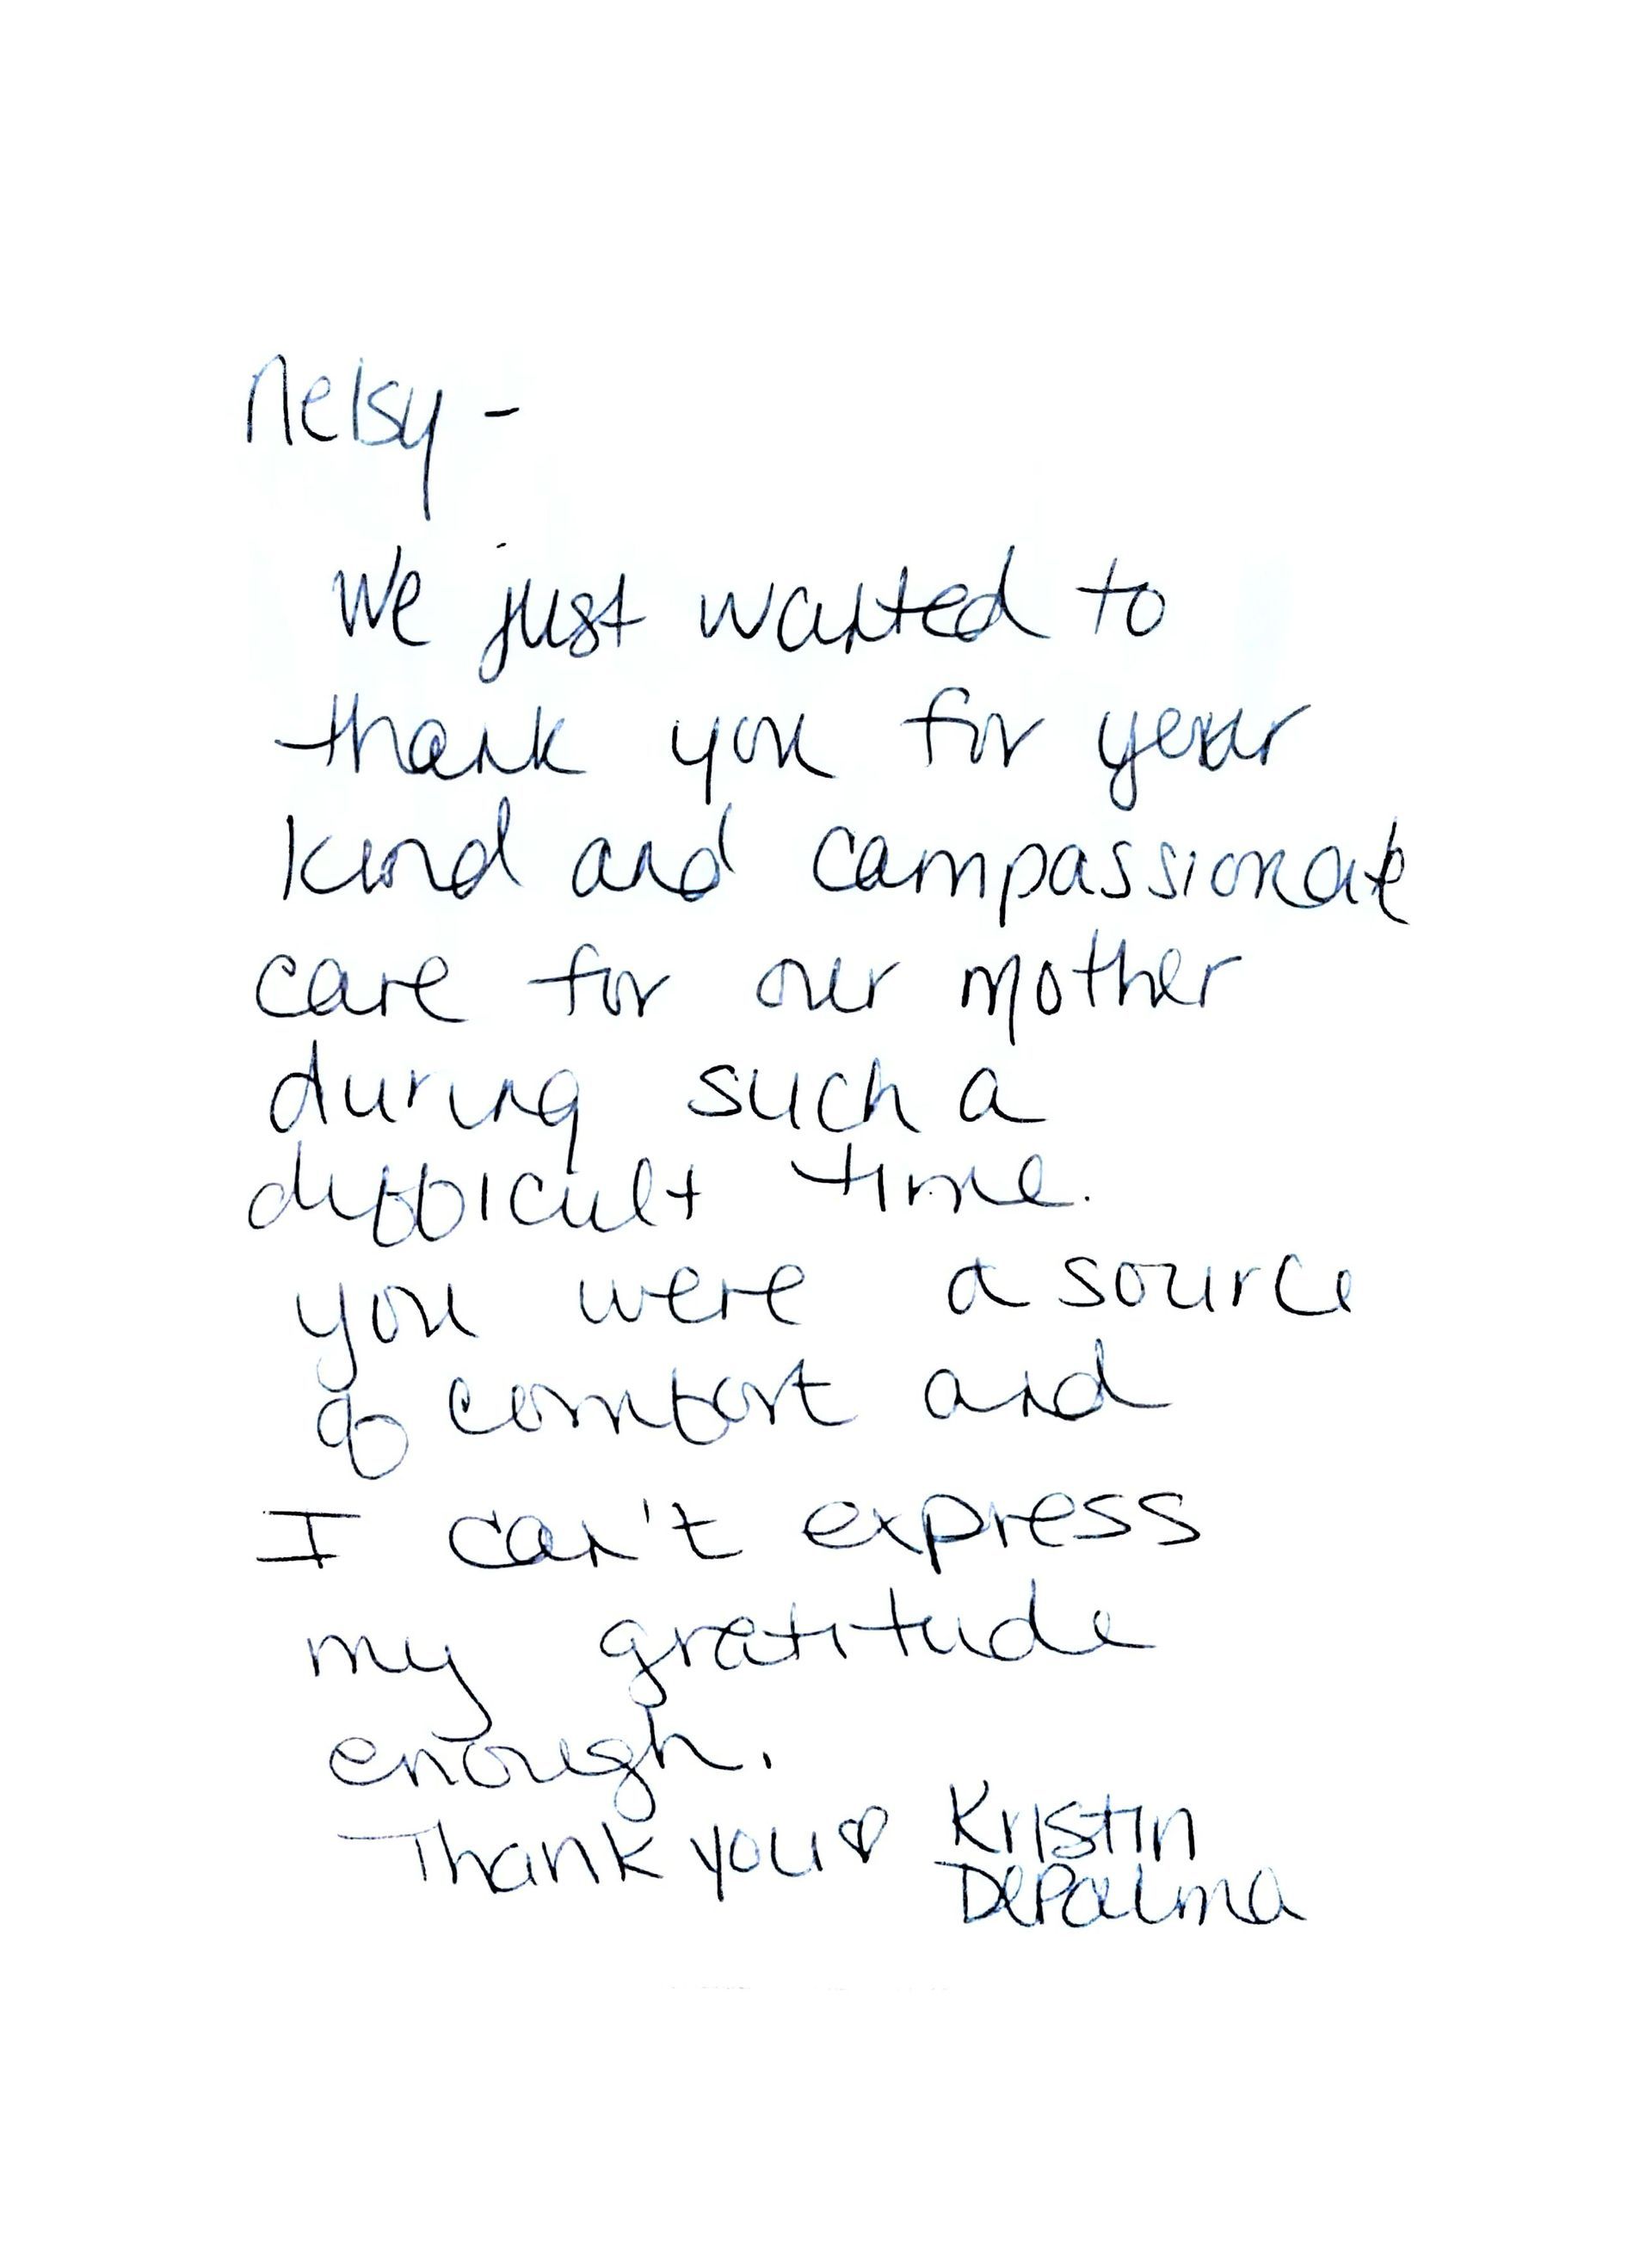 Nelsy -
We just wanted to
thank you for your
kind and compassionate
care for our mother
during such a
difficult time.
you were a source
of comfort and
I can't express
my gratitude
enough.
Thank you♡ Kristin
DePalma